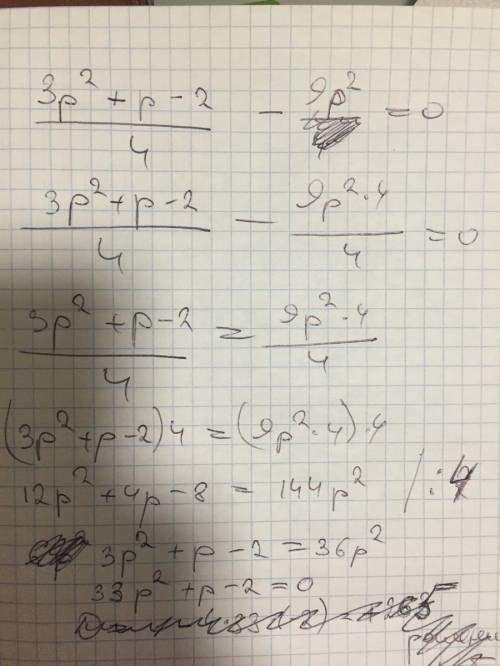 (3p² + p - 2)/4 - 9p² = 0
(3p² + p - 2)/4 - (9p² · 4)/4 = 0
(3p² + p - 2)/4 = (9p² · 4)/4
(3p² + p - 2) 4 = (9p² · 4) · 4
12p² + 4p - 8 = 144p² / : 4
3p² + p - 2 = 36p²
33p² + p - 2 = 0